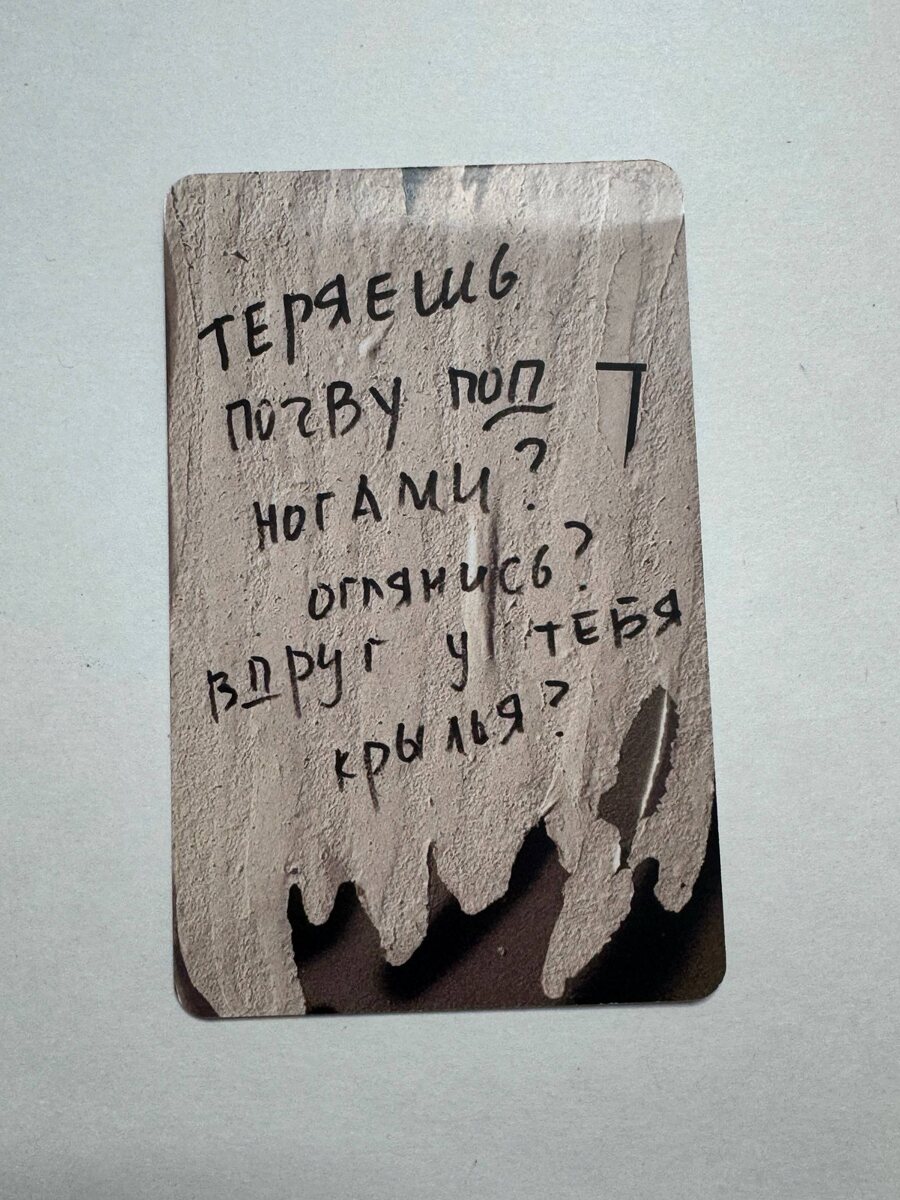 ТЕРЯЕШЬ
ПОЧВУ ПОД
НОГАМИ?
ОГЛЯНИСЬ?
ВДРУГ У ТЕБЯ
КРЫЛЬЯ?